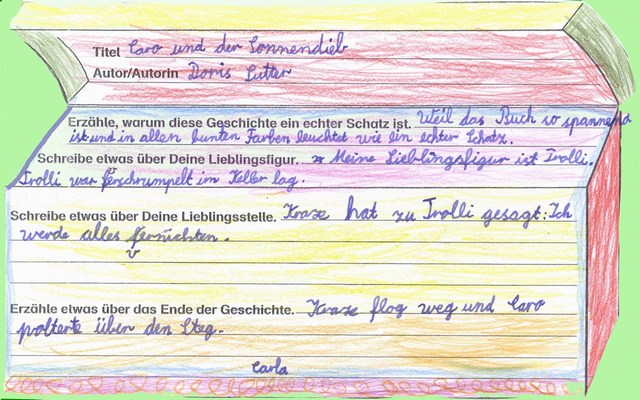 Titel Caro und der Sonnendieb
Autor/Autorin Doris Sutter
Erzähle, warum diese Geschichte ein echter Schatz ist. Weil das Buch so spannend
ist und in allen bunten Farben leuchtet wie ein echter Schatz.
Schreibe etwas über Deine Lieblingsfigur. Meine Lieblingsfigur ist Trolli.
Trolli war ferschrumpelt im Keller lag.
Schreibe etwas über Deine Lieblingsstelle. Kraxe hat zu Trolli gesagt: Ich
werde alles fernichten.
v
Erzähle etwas über das Ende der Geschichte. Kraxe flog weg und Caro
polterte über den Steg.
Carla